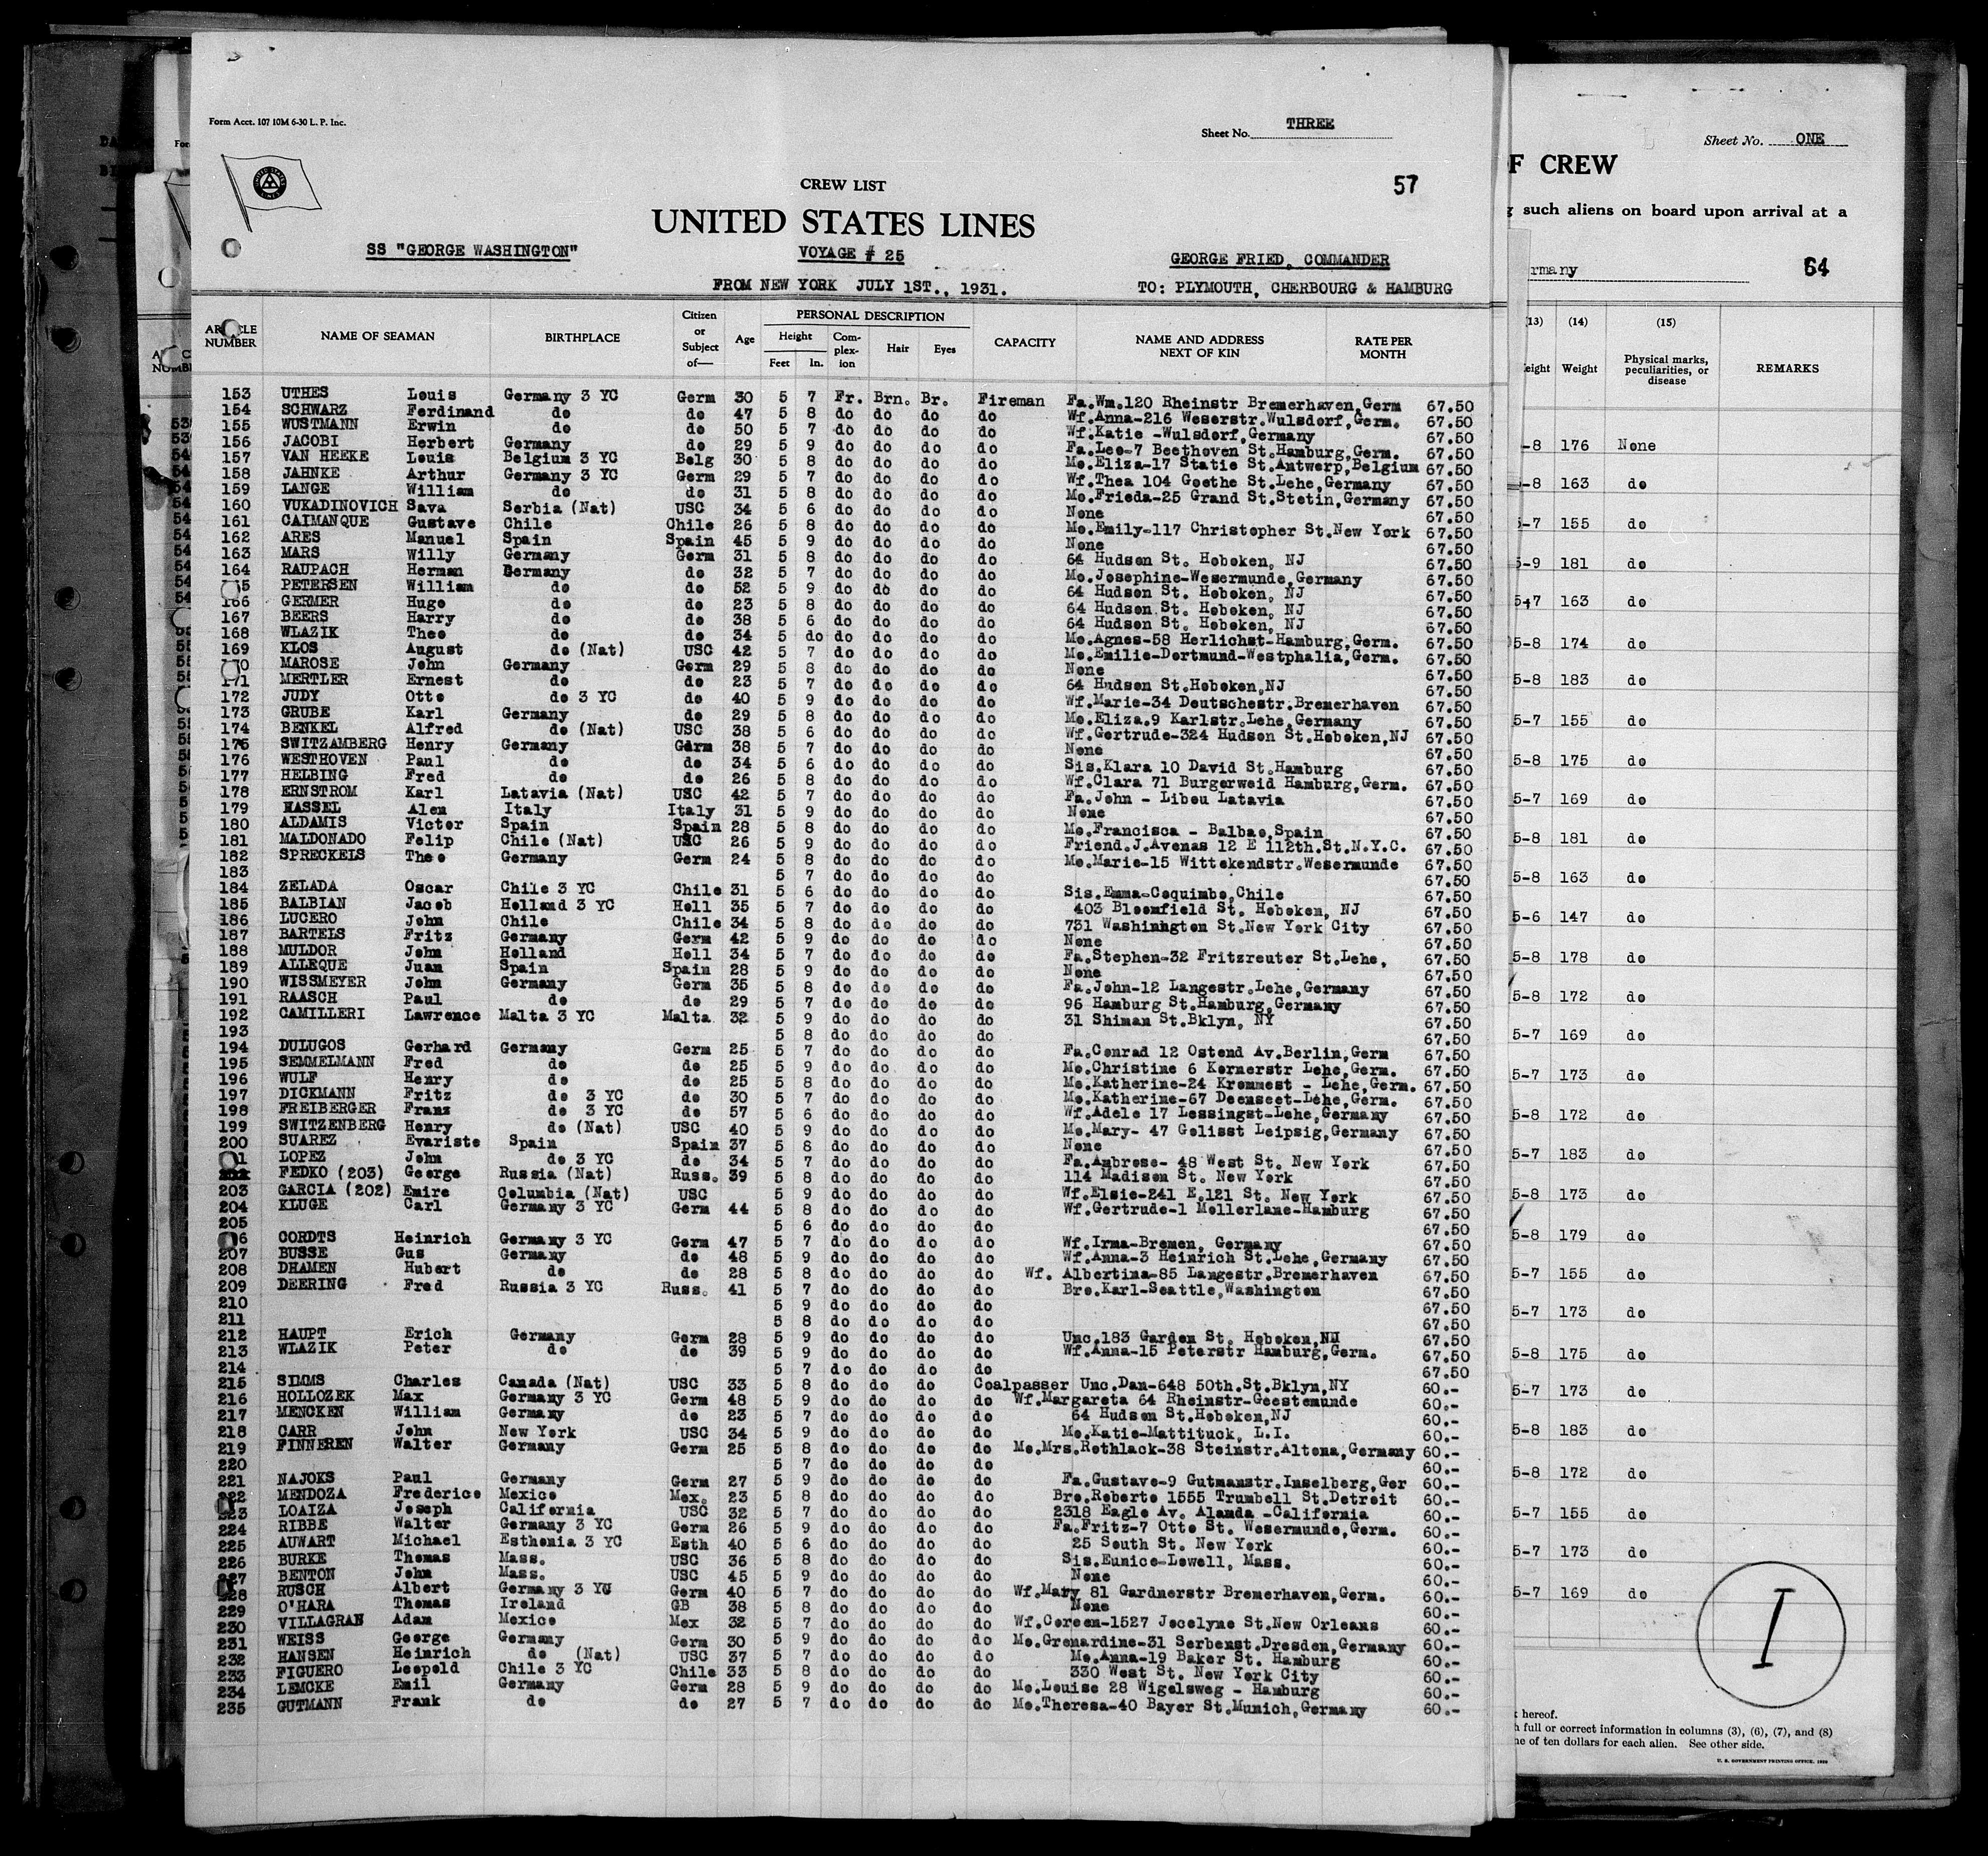 Form Acct. 107 10M 6-30 L. P. Inc.
Sheet No. THREE
CREW LIST
57
UNITED STATES LINES
SS "GEORGE WASHINGTON" VOYAGE # 25 GEORGE FRIED, COMMANDER
FROM NEW YORK JULY 1ST., 1931. TO: PLYMOUTH, CHERBOURG & HAMBURG
ARTICLE NUMBER NAME OF SEAMAN BIRTHPLACE Citizen or Subject of— Age PERSONAL DESCRIPTION Height Feet In. Complexion Hair Eyes CAPACITY NAME AND ADDRESS NEXT OF KIN RATE PER MONTH
153 UTHES Louis Germany 3 YC Germ 30 5 7 Fr. Brn. Br. Fireman Fa.Wm.120 Rheinstr Bremerhaven,Germ 67.50
154 SCHWARZ Ferdinand do do 47 5 8 do do do do Wf.Anna-216 Weserstr.Wulsdorf,Germ. 67.50
155 WUSTMANN Erwin do do 50 5 7 do do do do Wf.Katie -Wulsdorf,Germany 67.50
156 JACOBI Herbert Germany do 29 5 9 do do do do Fa.Leo-7 Beethoven St.Hamburg,Germ. 67.50
157 VAN HEEKE Louis Belgium 3 YC Belg 30 5 8 do do do do Mo.Eliza-17 Statie St.Antwerp,Belgium 67.50
158 JAHNKE Arthur Germany 3 YC Germ 29 5 7 do do do do Wf.Thea 104 Goethe St.Lehe,Germany 67.50
159 LANGE William do do 31 5 8 do do do do Mo.Frieda-25 Grand St.Stetin,Germany 67.50
160 VUKADINOVICH Sava Serbia (Nat) USC 34 5 6 do do do do None 67.50
161 CAIMANQUE Gustave Chile Chile 26 5 8 do do do do Mo.Emily-117 Christopher St.New York 67.50
162 ARES Manuel Spain Spain 45 5 9 do do do do None 67.50
163 MARS Willy Germany Germ 31 5 8 do do do do 64 Hudson St. Hoboken, NJ 67.50
164 RAUPACH Herman Germany do 32 5 7 do do do do Mo.Josephine-Wesermunde,Germany 67.50
5 PETERSEN William do do 52 5 9 do do do do 64 Hudson St. Hoboken, NJ 67.50
166 GERMER Hugo do do 23 5 8 do do do do 64 Hudson St. Hoboken, NJ 67.50
167 BEERS Harry do do 38 5 6 do do do do 64 Hudson St. Hoboken, NJ 67.50
168 WLAZIK Theo do do 34 5 do do do do do Mo.Agnes-58 Herlichst-Hamburg,Germ. 67.50
169 KLOS August do (Nat) USC 42 5 7 do do do do Mo.Emilie-Dortmund-Westphalia,Germ. 67.50
0 MAROSE John Germany Germ 29 5 8 do do do do None 67.50
171 MERTLER Ernest do do 23 5 7 do do do do 64 Hudson St.Hoboken,NJ 67.50
172 JUDY Otto do 3 YC do 40 5 9 do do do do Wf.Marie-34 Deutschestr.Bremerhaven 67.50
173 GRUBE Karl Germany do 29 5 8 do do do do Mo.Eliza.9 Karlstr.Lehe,Germany 67.50
174 BENKEL Alfred do (Nat) USC 38 5 6 do do do do Wf.Gertrude-324 Hudson St.Hoboken,NJ 67.50
175 SWITZAMBERG Henry Germany Germ 38 5 7 do do do do None 67.50
176 WESTHOVEN Paul do do 34 5 6 do do do do Sis.Klara 10 David St.Hamburg 67.50
177 HELBING Fred do do 26 5 8 do do do do Wf.Clara 71 Burgerweid Hamburg,Germ. 67.50
178 ERNSTROM Karl Latavia (Nat) USC 42 5 7 do do do do Fa.John - Libou Latavia 67.50
179 HASSEL Alex Italy Italy 31 5 9 do do do do None 67.50
180 ALDAMIS Victor Spain Spain 28 5 8 do do do do Mo.Francisca - Balbao,Spain 67.50
181 MALDONADO Felip Chile (Nat) USC 26 5 9 do do do do Friend.J.Avenas 12 E 112th.St.N.Y.C. 67.50
182 SPRECKELS Theo Germany Germ 24 5 8 do do do do Mo.Marie-15 Wittekendstr.Wesermunde 67.50
183 5 7 do do do do 67.50
184 ZELADA Oscar Chile 3 YC Chile 31 5 6 do do do do Sis.Emma-Coquimbo,Chile 67.50
185 BALBIAN Jacob Holland 3 YC Holl 35 5 7 do do do do 403 Bloomfield St. Hoboken, NJ 67.50
186 LUCERO John Chile Chile 34 5 8 do do do do 731 Washinhgton St.New York City 67.50
187 BARTELS Fritz Germany Germ 42 5 9 do do do do None 67.50
188 MULDOR John Holland Holl 34 5 7 do do do do Fa.Stephen-32 Fritzreuter St.Lehe, 67.50
189 ALLEQUE Juan Spain Spain 28 5 9 do do do do None 67.50
190 WISSMEYER John Germany Germ 35 5 8 do do do do Fa.John-12 Langestr.Lehe,Germany 67.50
191 RAASCH Paul do do 29 5 7 do do do do 96 Hamburg St.Hamburg,Germany 67.50
192 CAMILLERI Lawrence Malta 3 YC Malta 32 5 9 do do do do 31 Shiman St.Bklyn, NY 67.50
193 5 8 do do do do 67.50
194 DULUGOS Gerhard Germany Germ 25 5 7 do do do do Fa.Conrad 12 Ostend Av.Berlin,Germ 67.50
195 SEMMELMANN Fred do do 25 5 9 do do do do Mo.Christine 6 Kornerstr Lehe,Germ. 67.50
196 WULF Henry do do 25 5 8 do do do do Mo.Katherine-24 Krommest - Lehe,Germ. 67.50
197 DICKMANN Fritz do 3 YC do 30 5 7 do do do do Mo.Katherine-67 Deenseet-Lehe,Germ. 67.50
198 FREIBERGER Franz do 3 YC do 57 5 6 do do do do Wf.Adele 17 Lessingst-Lehe,Germany 67.50
199 SWITZENBERG Henry do (Nat) USC 40 5 9 do do do do Mo.Mary- 47 Golisst Leipsig,Germany 67.50
200 SUAREZ Evariste Spain Spain 37 5 8 do do do do None 67.50
01 LOPEZ John do 3 YC do 34 5 7 do do do do Fa.Ambrose- 48 West St. New York 67.50
FEDKO (203) George Russia (Nat) Russ. 39 5 8 do do do do 114 Madison St. New York 67.50
203 GARCIA (202) Emire Columbia (Nat) USC 5 9 do do do do Wf.Elsie-241 E.121 St. New York 67.50
204 KLUGE Carl Germany 3 YC Germ 44 5 8 do do do do Wf.Gertrude-1 Mollerlane-Hamburg 67.50
205 5 6 do do do do 67.50
6 CORDTS Heinrich Germany 3 YC Germ 47 5 7 do do do do Wf.Irma-Bremen, Germany 67.50
207 BUSSE Gus Germany do 48 5 9 do do do do Wf.Anna-3 Heinrich St.Lehe,Germany 67.50
208 DHAMEN Hubert do do 28 5 8 do do do do Wf. Albertina-85 Langestr.Bremerhaven 67.50
209 DEERING Fred Russia 3 YC Russ. 41 5 7 do do do do Bro.Karl-Seattle,Washington 67.50
210 5 9 do do do do 67.50
211 5 8 do do do do 67.50
212 HAUPT Erich Germany Germ 28 5 9 do do do do Unc.183 Garden St. Hoboken,NH 67.50
213 WLAZIK Peter do do 39 5 9 do do do do Wf.Anna-15 Peterstr Hamburg,Germ. 67.50
214 5 7 do do do do 67.50
215 SIMMS Charles Canada (Nat) USC 33 5 8 do do do Coalpasser Unc.Dan-648 50th.St.Bklyn,NY 60.-
216 HOLLOZEK Max Germany 3 YC Germ 48 5 9 do do do do Wf.Margareta 64 Rheinstr-Geestemunde 60.-
217 MENCKEN William Germany do 23 5 7 do do do do 64 Hudson St.Hoboken,NJ 60.-
218 CARR John New York USC 34 5 9 do do do do Mo.Katie-Mattituck, L.I. 60.-
219 FINNEREN Walter Germany Germ 25 5 8 do do do do Mo.Mrs.Rothlack-38 Steinstr.Altona,Germany 60.-
220 5 7 do do do do 60.-
221 NAJOKS Paul Germany Germ 27 5 9 do do do do Fa.Gustave-9 Gutmanstr.Inselberg,Ger 60.-
222 MENDOZA Frederico Mexico Mex. 23 5 8 do do do do Bro.Roberto 1555 Trumbell St.Detroit 60.-
223 LOAIZA Joseph California USC 32 5 7 do do do do 2318 Eagle Av. Alamda -California 60.-
224 RIBBE Walter Germany 3 YC Germ 26 5 9 do do do do Fa.Fritz-7 Otto St. Wesermunde,Germ. 60.-
225 AUWART Michael Esthonia 3 YC Esth 40 5 6 do do do do 25 South St. New York 60.-
226 BURKE Thomas Mass. USC 36 5 8 do do do do Sis.Eunice-Lowell, Mass. 60.-
227 BENTON John Mass. USC 45 5 9 do do do do None 60.-
228 RUSCH Albert Germany 3 YC Germ 40 5 7 do do do do Wf.Mary 81 Gardnerstr Bremerhaven,Germ. 60.-
229 O'HARA Thomas Ireland GB 38 5 8 do do do do None 60.-
230 VILLAGRAN Adam Mexico Mex 32 5 7 do do do do Wf.Coreen-1527 Jocelyne St.New Orleans 60.-
231 WEISS George Germany Germ 30 5 9 do do do do Mo.Grenardine-31 Serbenst.Dresden,Germany 60.-
232 HANSEN Heinrich do (Nat) USC 37 5 7 do do do do Mo.Anna-19 Baker St. Hamburg 60.-
233 FIGUERO Leopold Chile 3 YC Chile 33 5 8 do do do do 330 West St. New York City 60.-
234 LEMCKE Emil Germany Germ 28 5 9 do do do do Mo.Louise 28 Wigelsweg - Hamburg 60.-
235 GUTMANN Frank do do 27 5 7 do do do do Mo.Theresa-40 Bayer St.Munich,Germany 60.-
Sheet No. ONE
F CREW
such aliens on board upon arrival at a
rmany 64
(13) (14) (15)
eight Weight Physical marks, peculiarities, or disease REMARKS
-8 176 None
-8 163 do
5-7 155 do
5-9 181 do
5-7 163 do
5-8 174 do
5-8 183 do
5-7 155 do
5-8 175 do
5-7 169 do
5-8 181 do
5-8 163 do
5-6 147 do
5-8 178 do
5-8 172 do
5-7 169 do
5-7 173 do
5-8 172 do
5-7 183 do
5-8 173 do
5-8 179 do
5-7 155 do
5-7 173 do
5-8 175 do
5-7 173 do
5-8 183 do
5-8 172 do
5-7 155 do
5-7 173 do
5-7 169 do
I
hereof.
full or correct information in columns (3), (6), (7), and (8)
ne of ten dollars for each alien. See other side.
U. S. GOVERNMENT PRINTING OFFICE